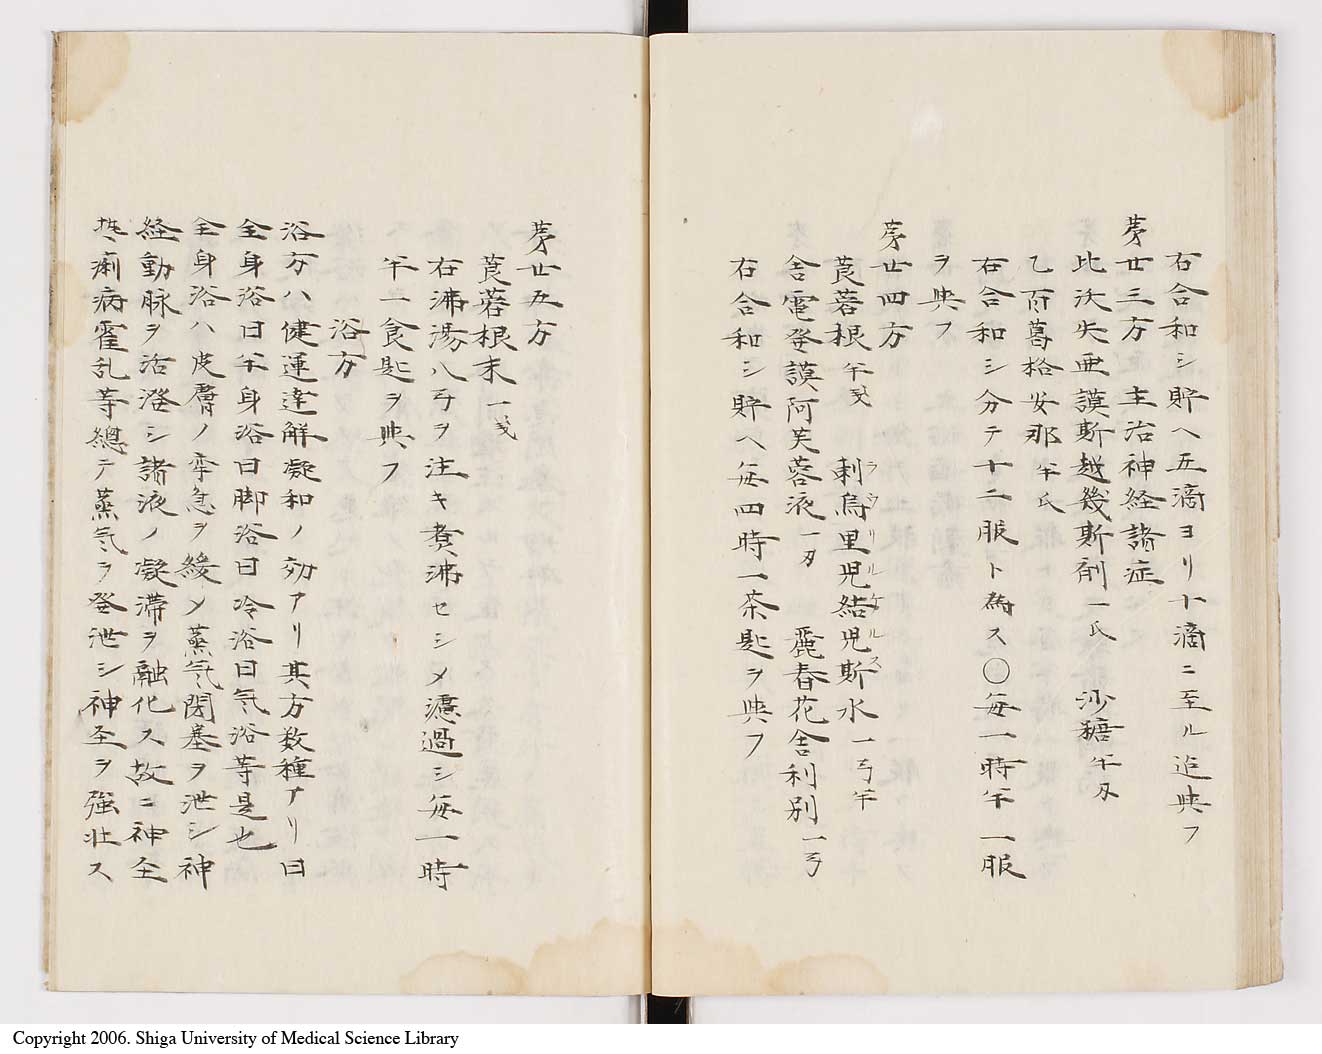 右合和シ貯ヘ五滴ヨリ十滴ニ至ル迠與フ
苐廿三方 主治神経諸症
比沃失亜謨斯越幾斯剤一氏 沙糖半刄
乙百葛格安那半氏
右合和シ分テ十二服ト為ス〇毎一時半一服
ヲ與フ
苐廿四方
莨蓉根半戔 剌烏里児結児斯水一弓半
ラウリルケルス
舎電登謨阿芙蓉液一刄 麗春花舎利別一弓
右合和シ貯ヘ毎四時一茶匙ヲ與フ
苐廿五方
莨蓉根末一戔
右沸湯八弓ヲ注キ煮沸セシメ濾過シ毎一時
半一食匙ヲ與フ
浴方
浴方ハ健運達解凝和ノ効アリ其方数種アリ曰
全身浴曰半身浴曰脚浴曰冷浴曰気浴等是也
全身浴ハ皮膚ノ牽急ヲ緩メ蒸気閉塞ヲ泄シ神
経動脉ヲ活潑シ諸液ノ凝滞ヲ融化ス故ニ神全
痳病霍乱等總テ蒸気ヲ發泄シ神全ヲ強壮ス
Copyright 2006. Shiga University of Medical Science Library